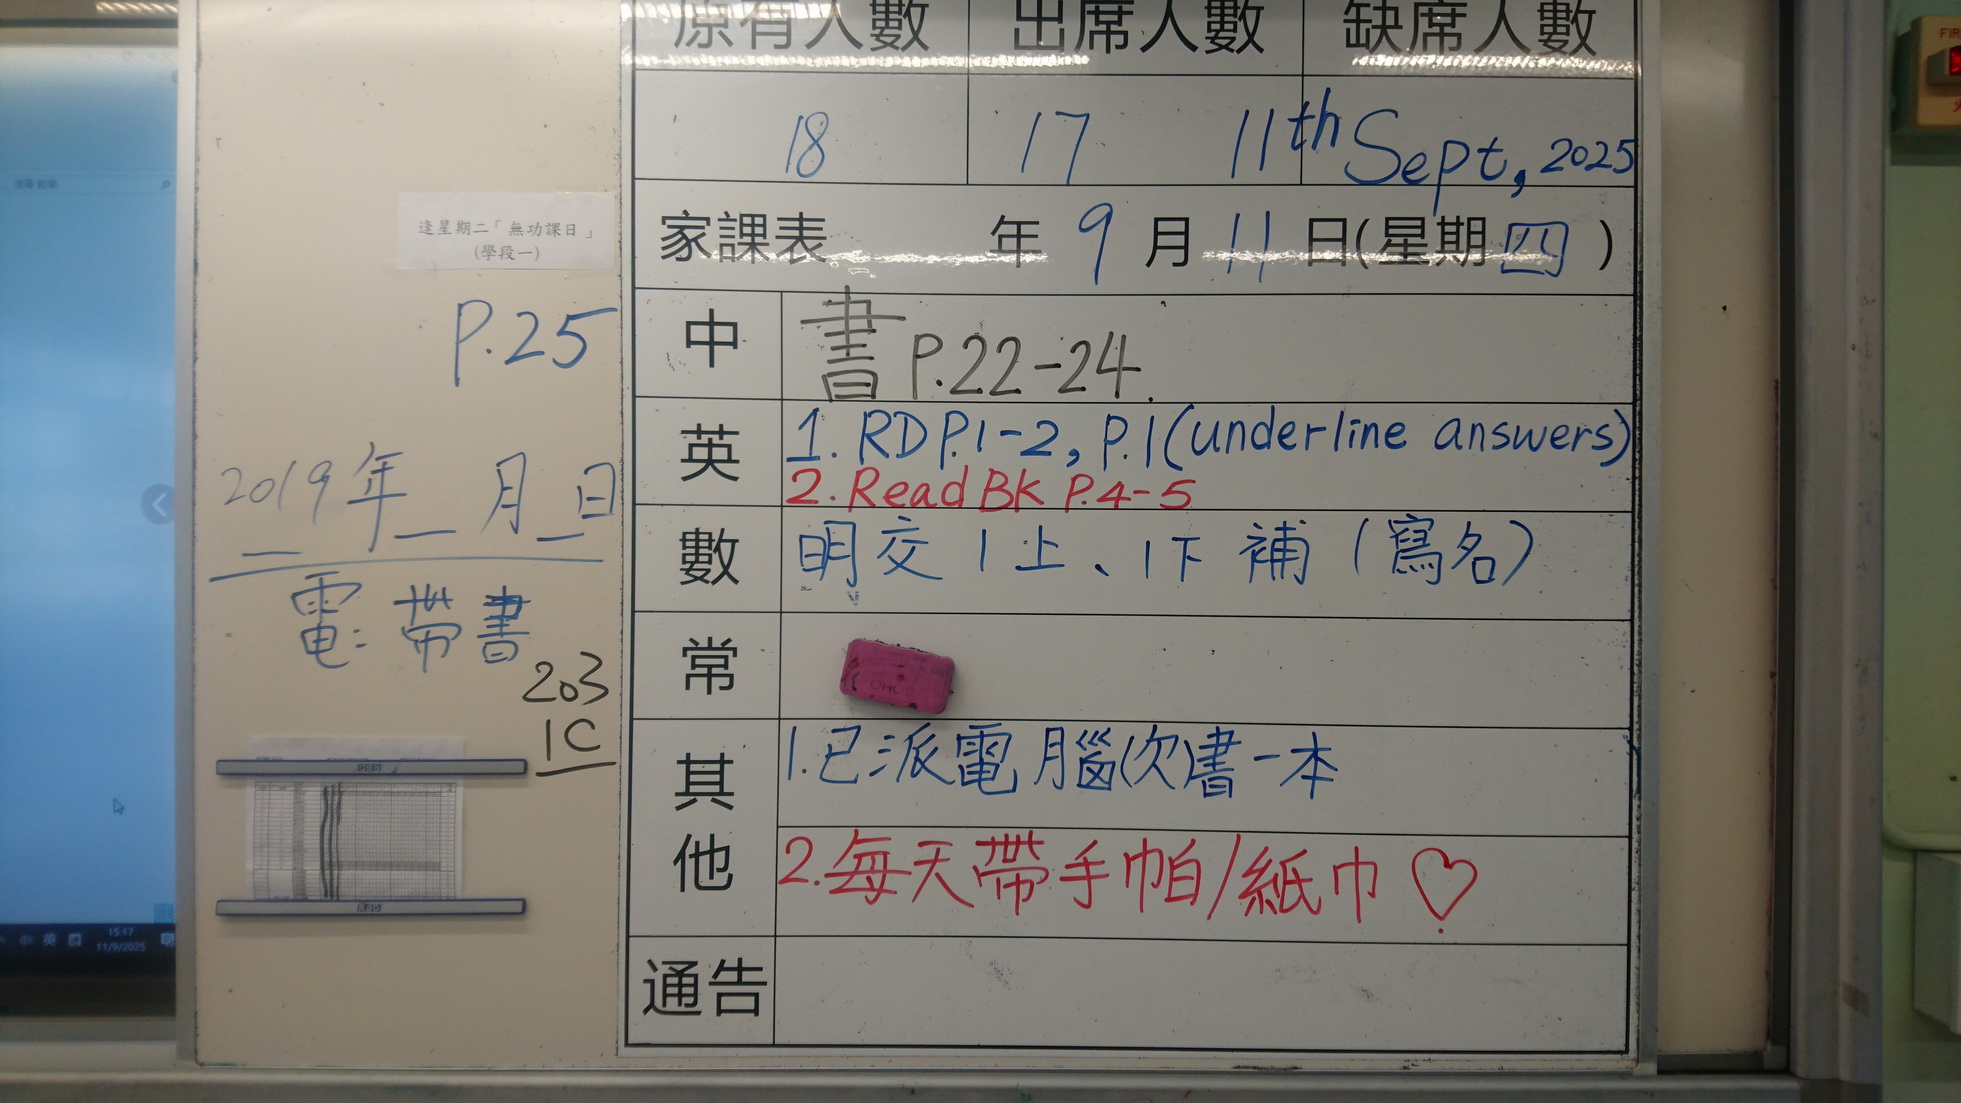 原有人數 出席人數 缺席人數
18 17 11th Sept, 2025
家課表 年 9 月 11 日(星期 四 )
中 書 P.22-24.
英 1. RD P.1-2, P.1 (underline answers)
2. Read BK P.4-5
數 明交 1上、1下 補 (寫名)
常
其他 1.已派電腦(次)書一本
2.每天帶手帕/紙巾 ♡
通告
逢星期二「無功課日」
(學段一)
P.25
2019年_月_日
電: 帶書
203
1C
英
15:17
11/9/2025
FIR